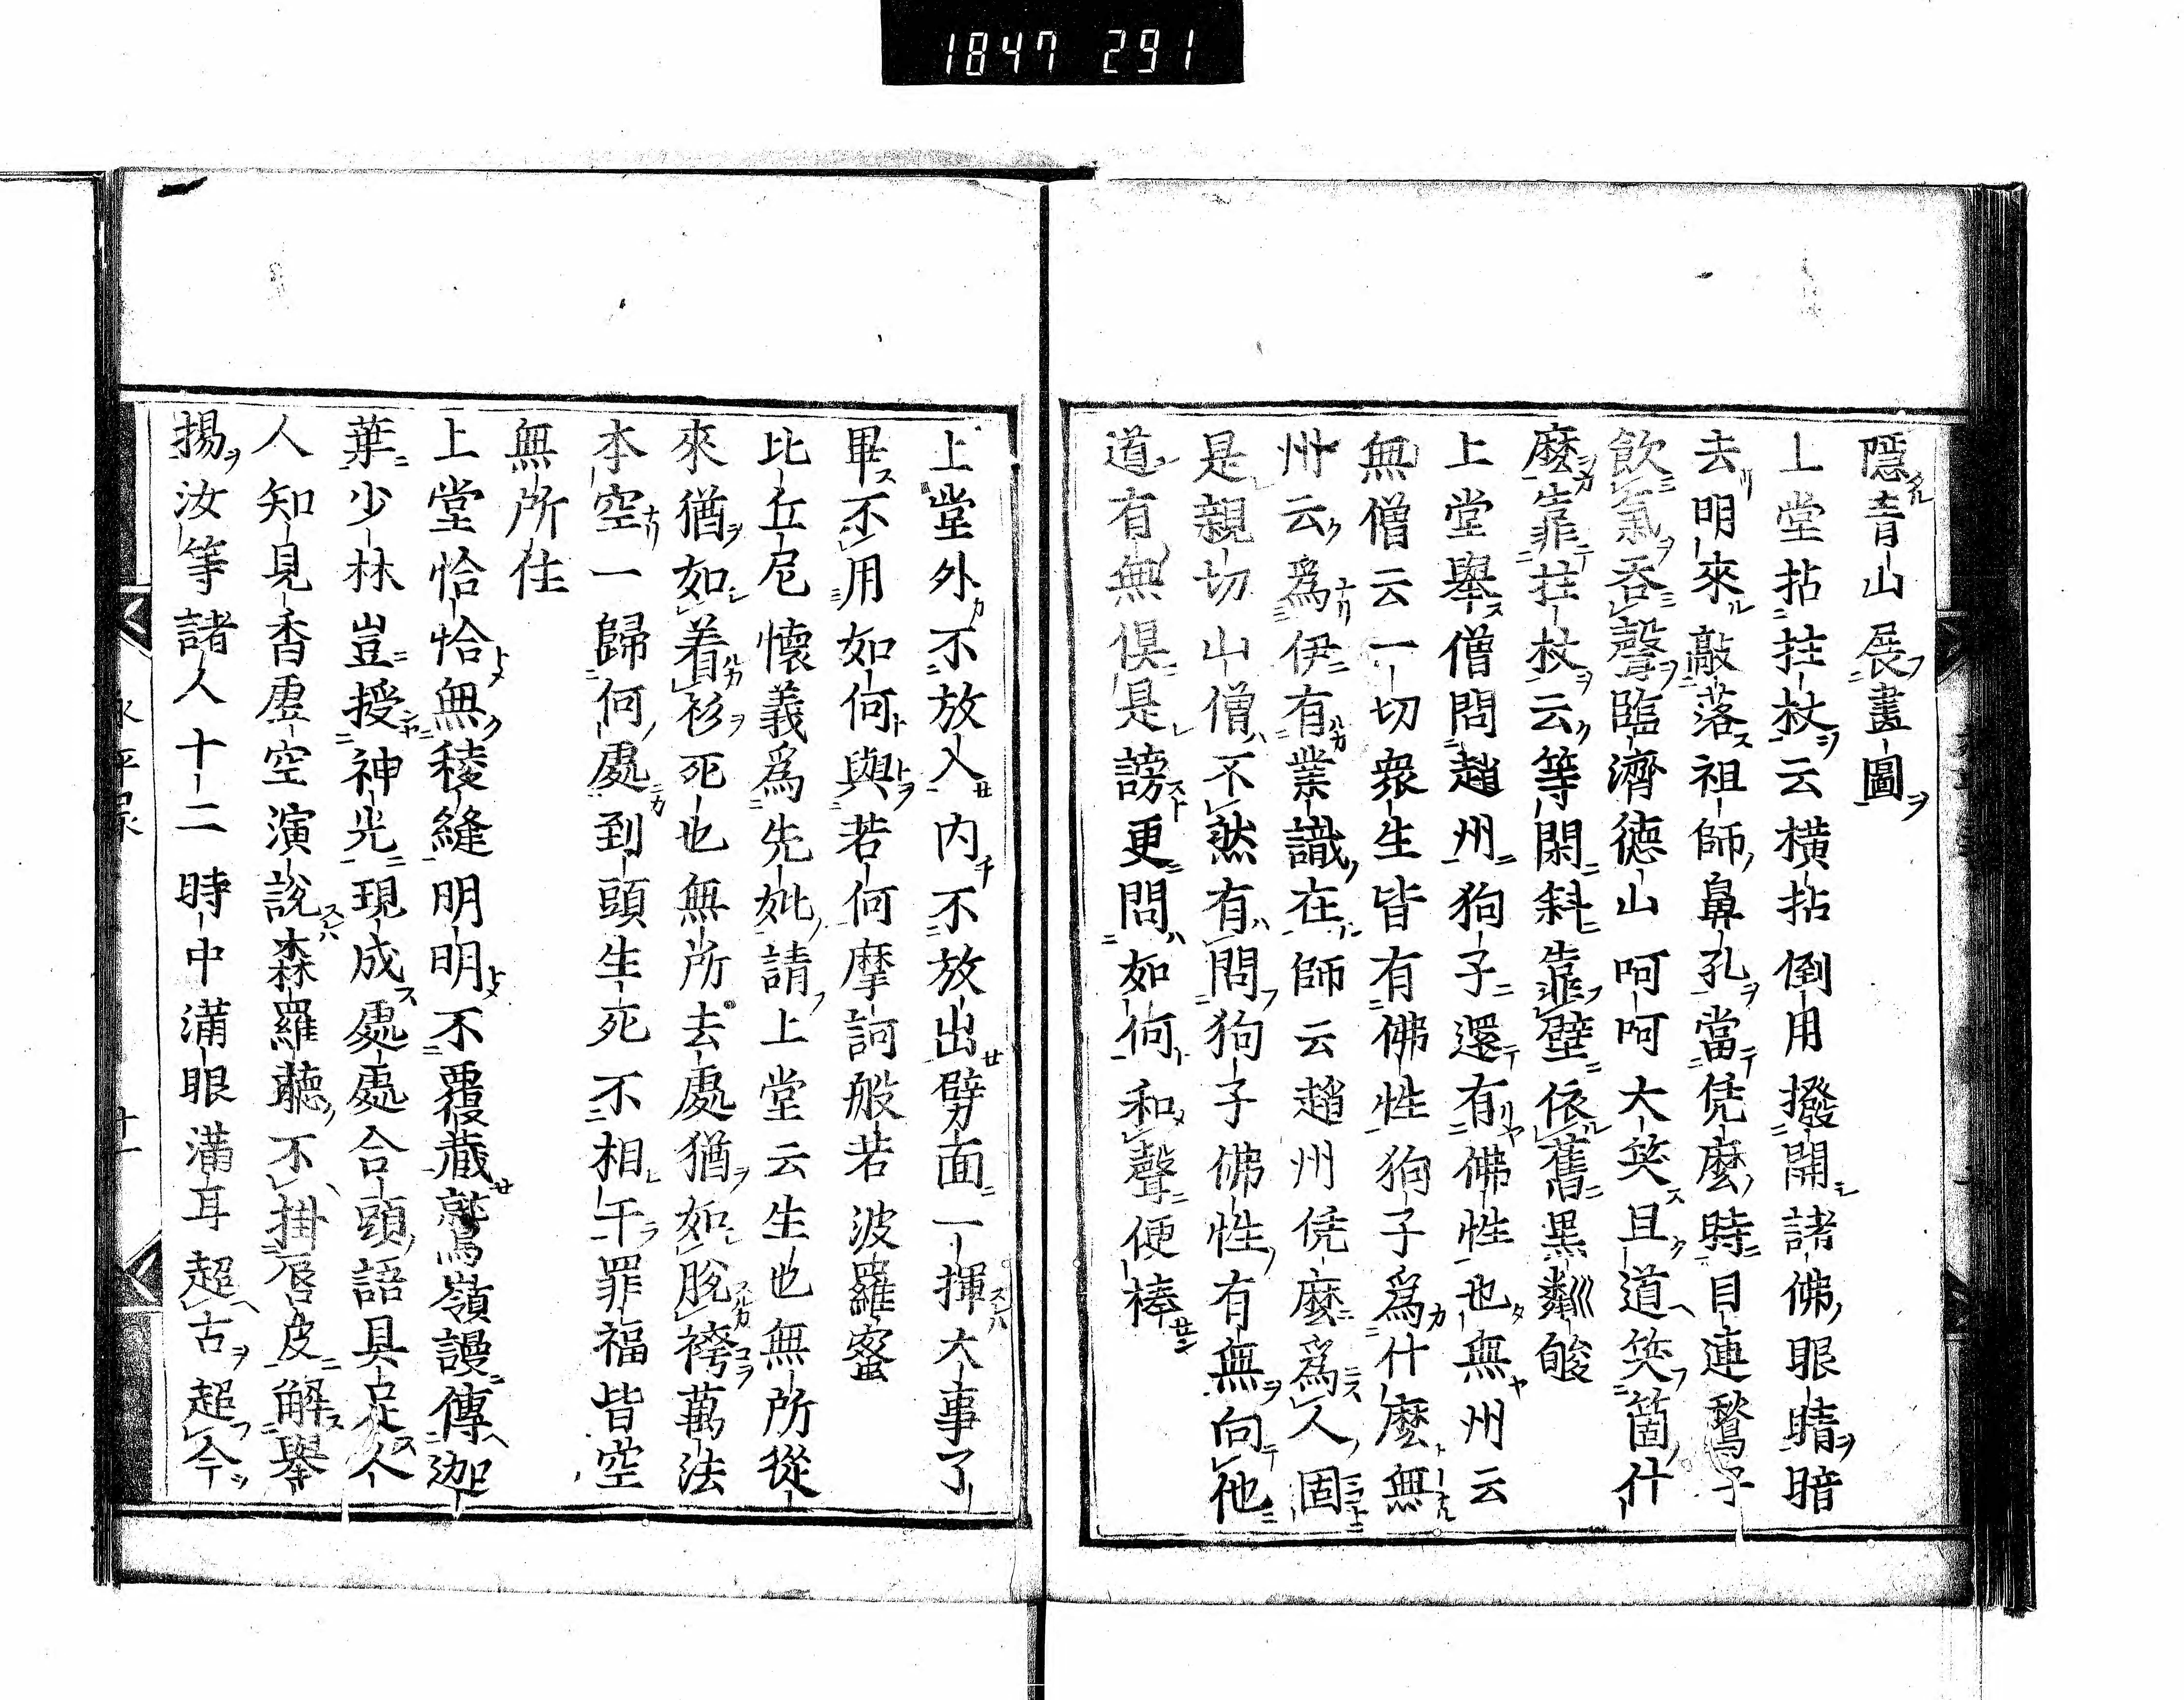 1847 291
隱青山展畫圖
上堂拈拄杖云橫拈倒用撥開諸佛眼睛暗
去明來敲落祖師鼻孔當凭麼時目連鶖子
飲氣吞聲臨濟德山呵呵大笑且道笑箇什
麼靠拄杖云等閑斜靠壁依舊黑粼皴
上堂舉僧問趙州狗子還有佛性也無州云
無僧云一切衆生皆有佛性狗子爲什麼無
州云爲伊有業識在師云趙州凭麼爲人固
是親切山僧不然有問狗子佛性有無向他
道有無俱是謗更問如何和聲便棒
上堂外不放入內不放出劈面一揮大事了
畢不用如何與若何摩訶般若波羅蜜
比丘尼懷義爲先妣請上堂云生也無所從
來猶如着衫死也無所去處猶如脫袴萬法
本空一歸何處到頭生死不相干罪福皆空
無所住
上堂恰恰無稜縫明明不覆藏鷲嶺謾傳迦
葉少林豈授神光現成處處合頭語具足人
人知見香虛空演說森羅聽不掛唇皮解舉
揚汝等諸人十二時中滿眼滿耳超古超今
永平录 廿一